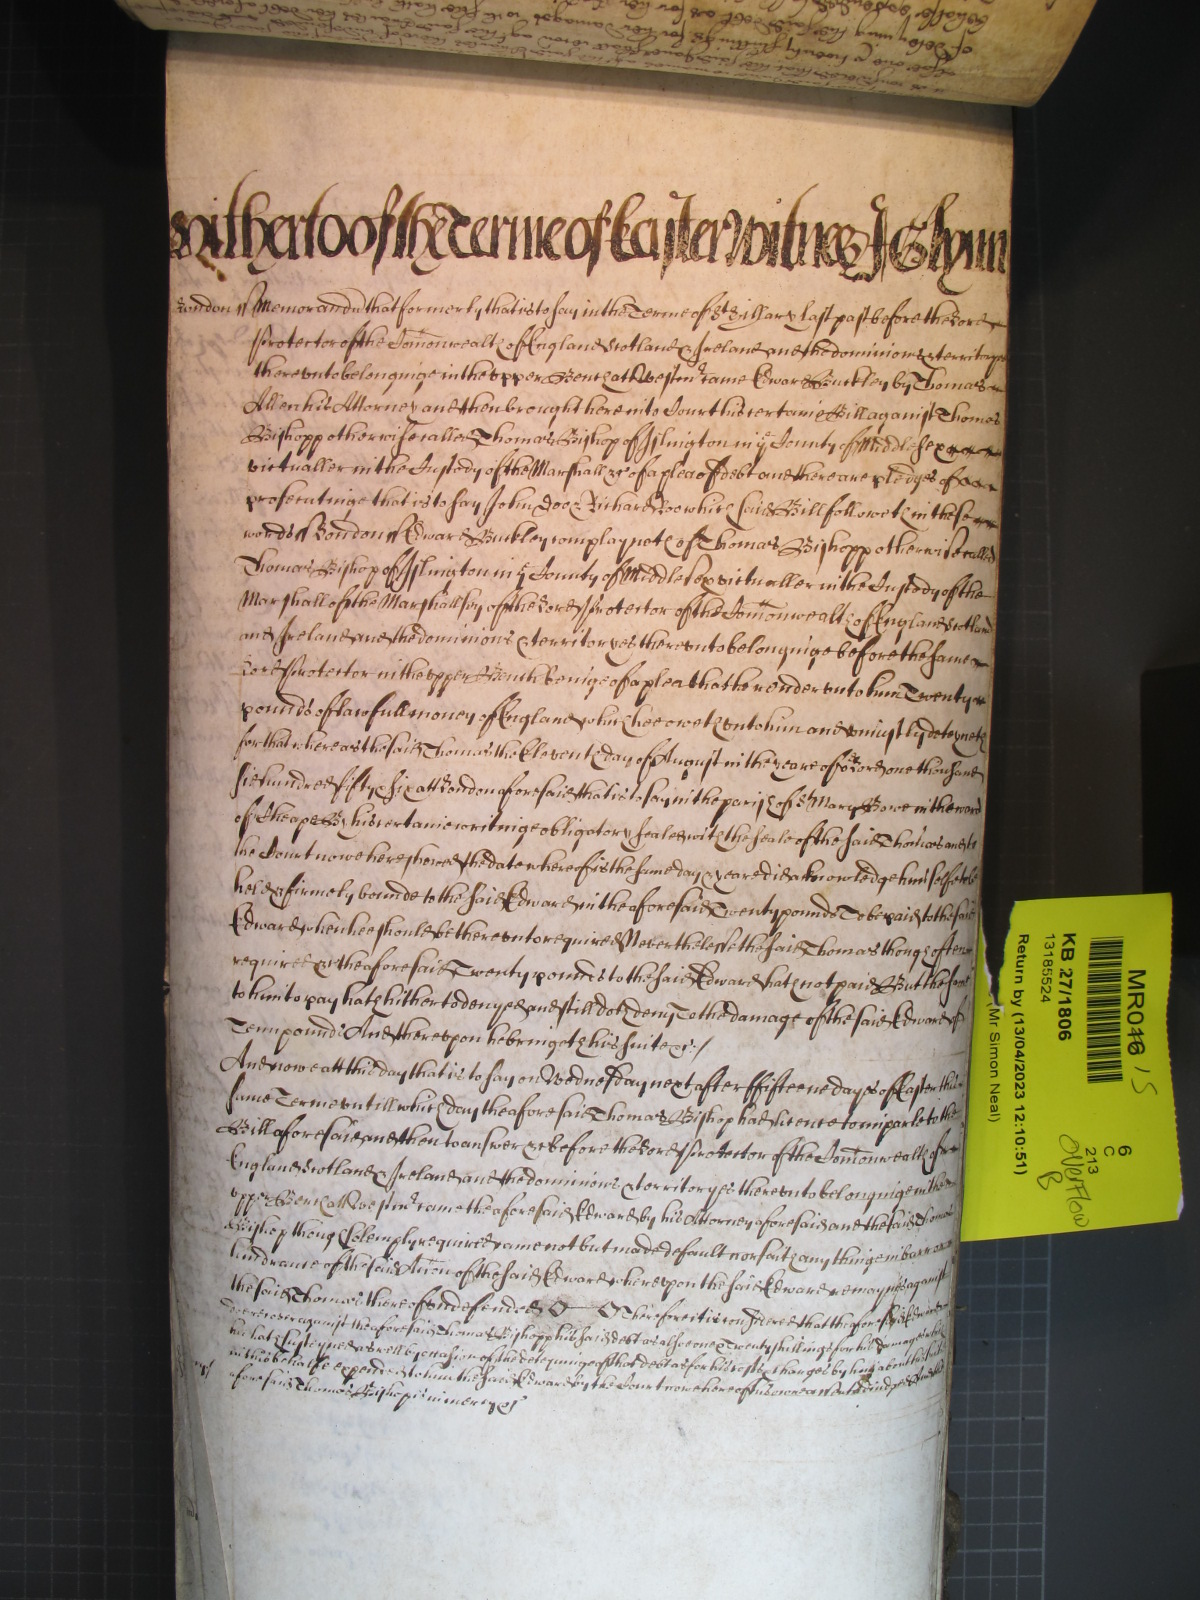 Hitherto of the Terme of Easter Witnes J Glynn
London ss Memorandu that formerly that is to say in the Terme of St Hillary last past before the Lord
Protector of the Comonwealth of England Scotland & Ireland and the dominions & territoryes
thereunto belonginge in the upper Bench at Westmr came Edward Buckley by Thomas
Allen his Attorney and then brought here into Court his certaine Bill against Thomas
Bishopp otherwise called Thomas Bishop of Islington in ye County of Middlesex
victualler in the Custody of the Marshall &c of a plea of debt and there are pledges of
prosecutinge that is to say John Doe & Richard Roe which said Bill followeth in these
words ss London ss Edward Buckley complayneth of Thomas Bishopp otherwise called
Thomas Bishop of Islington in ye County of Middlesex victualler in the Custody of the
Marshall of the Marshallsey of the Lord Protector of the Comonwealth of England Scotland
and Ireland and the dominions & territoryes thereunto belonginge before the same
Lord Protector in the upper Bench beinge of a plea that he render unto him Twenty
pounds of lawfull money of England which hee oweth unto him and uniustly deteyneth
for that whereas the said Thomas the Eleventh day of August in the yeare of or Lord one thousand
sixe hundred fifty & six att London aforesaid that is to say in the parish of St Mary Bowe in the ward
of Cheape By his certaine writinge obligatory sealed with the seale of the said Thomas and to
the Court nowe here shewed the date whereof is the same day & yeare did acknowledge himselfe to be
held & firmely bound to the said Edward in the aforesaid Twenty pounds To be paid to the said
Edward when hee should be thereunto required Neverthelesse the said Thomas though often
required &c the aforesaid Twenty pounds to the said Edward hath not paid But the same
to him to pay hath hitherto denyed and still doth deny To the damage of the said Edward of
Tenn pounds And thereupon he bringeth his suite &c
And nowe att this day that is to say on Wednesday next after ffifteene dayes of Easter this
same Terme untill which day the aforesaid Thomas Bishop had licence to imparle to the
Bill aforesaid and then to answer &c before the Lord Protector of the Comonwealth of
England Scotland & Ireland and the dominions & territoryes thereunto belonginge in the
upper Bench att Westmr came the aforesaid Edward by his Attorney aforesaid and the said Thomas
Bishop though solemply required came not but made default nor saith any thinge in barr or
hindrance of the said Accon of the said Edward whereupon the said Edward remaynes against
the said Thomas thereof undefended Therefore it is considered that the aforesaid Edward
recover against the aforesaid Thomas Bishopp his said debt as also one & Twenty shillings for his damages which
hee hath susteyned as well by occasion of the deteyninge of that debt as for his costs & charges by him about his suite
in this behalfe expended to him the said Edward by the Court nowe here of his owne assent adiudged And the
aforesaid Thomas Bishop is in mercy &c
MR016 15
KB 27/1806
13185524
Return by (13/04/2023 12:10:51)
(Mr Simon Neal)
6
C
213
Overflow
B